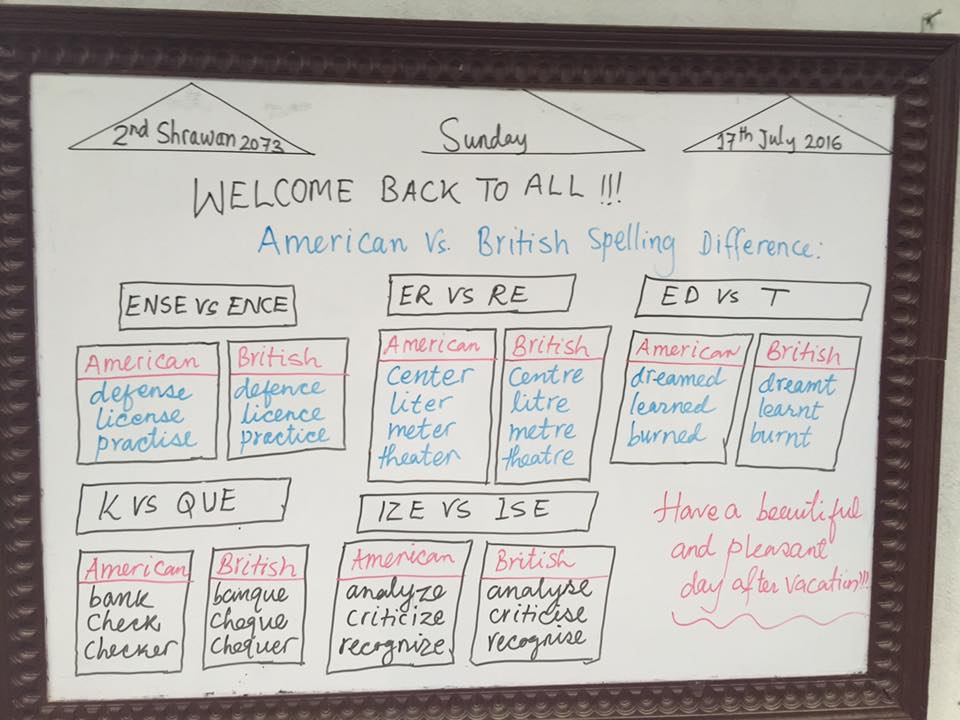 2nd Shrawan 2073
Sunday
17th July 2016
WELCOME BACK TO ALL !!!
American Vs. British Spelling Difference:
ENSE VS ENCE
American British
defense defence
license licence
practise practice
ER VS RE
American British
center centre
liter litre
meter metre
theater theatre
ED VS T
American British
dreamed dreamt
learned learnt
burned burnt
K VS QUE
American British
bank banque
check cheque
checker chequer
IZE VS ISE
American British
analyze analyse
criticize criticise
recognize recognise
Have a beautiful
and pleasant
day after vacation!!!